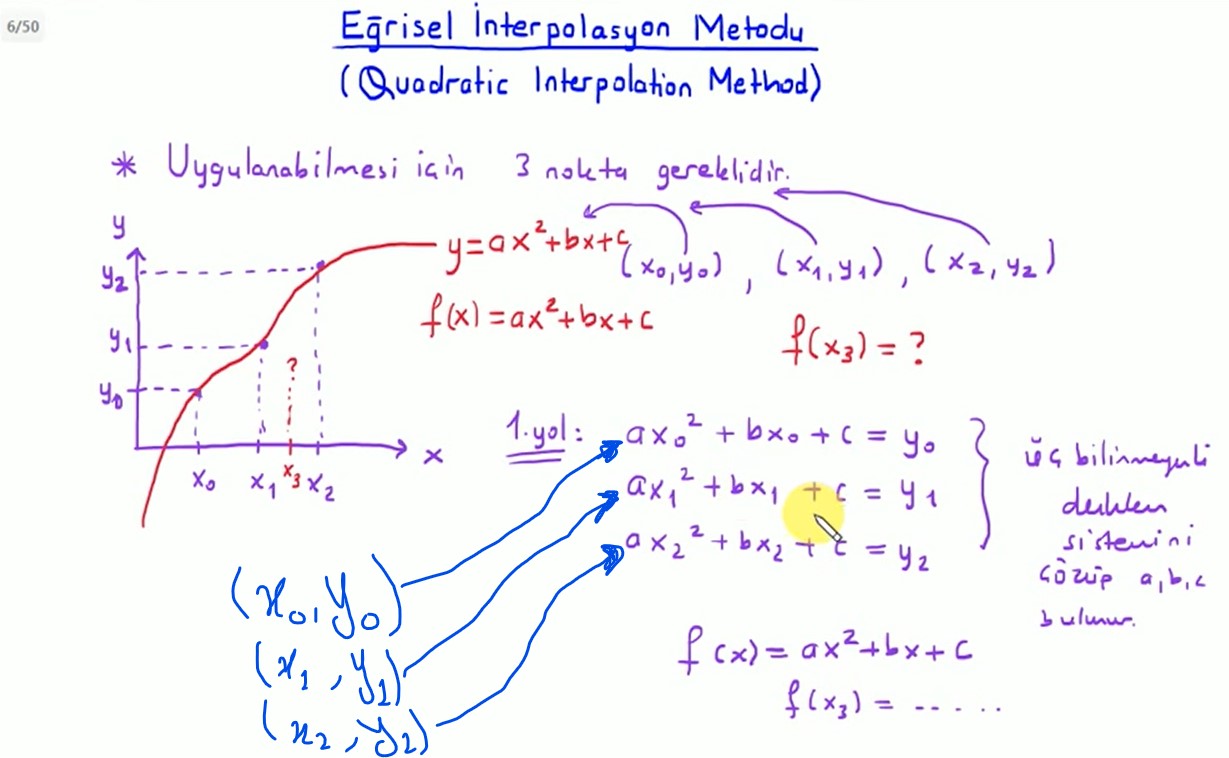 6/50
Eğrisel İnterpolasyon Metodu
(Quadratic Interpolation Method)
* Uygulanabilmesi için 3 nokta gereklidir.
y
y₂
y₁
y₀
x₀ x₁ x₃ x₂
x
?
y=ax²+bx+c
(x₀,y₀) , (x₁,y₁) , (x₂,y₂)
f(x)=ax²+bx+c
f(x₃) = ?
1.yol:
ax₀² + bx₀ + c = y₀
ax₁² + bx₁ + c = y₁
ax₂² + bx₂ + c = y₂
üç bilinmeyenli
denklem
sistemini
çözüp a,b,c
bulunur.
(x₀, y₀)
(x₁, y₁)
(x₂, y₂)
f(x) = ax²+bx+c
f(x₃) = -- - . .